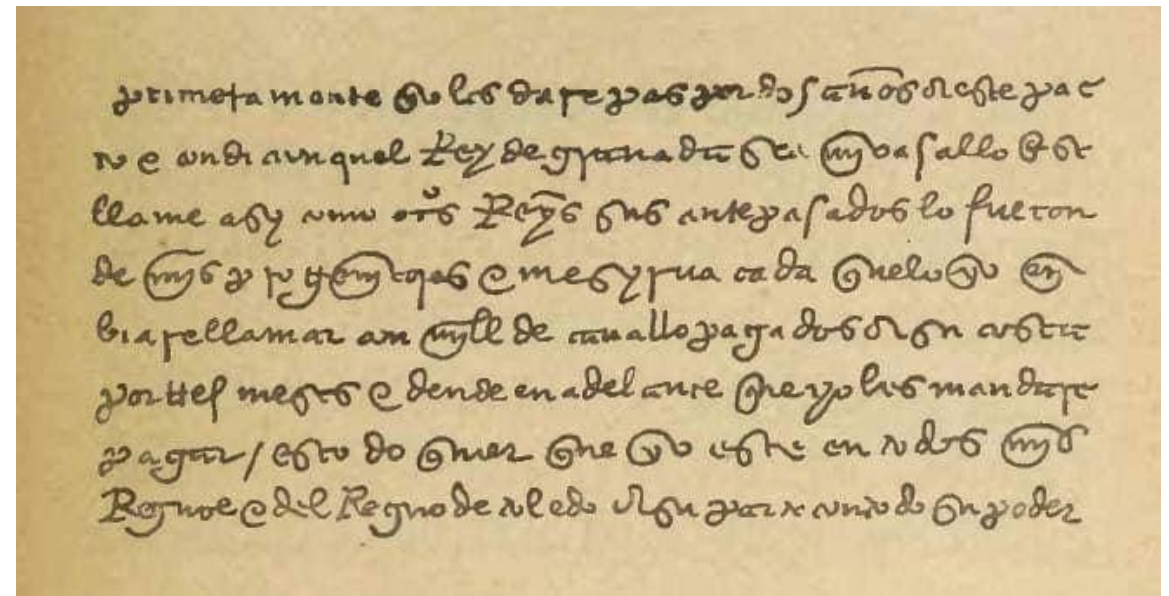 primeramente q̃ yo les dare pas por dos años de este pac
to e condicion quel Rey de granada sea mi vasallo e se
llame asy como otros Reyes sus antepasados lo fueron
de mis progenitores e me syrua cada que lo yo en
biare llamar con mill de cauallo pagados de su costa
por tres meses e dende en adelante que yo les mandare
pagar / esto do quier que yo este en todos mis
Regnos e del Regno de toledo de su parte con todo su poder